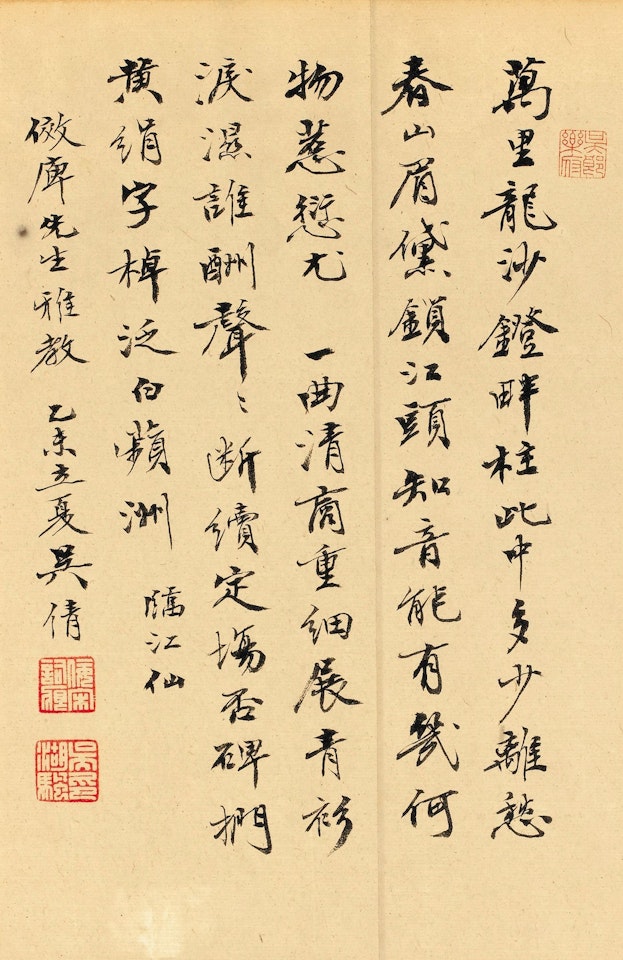 吳郎樂府
萬里龍沙鐙畔柱此中多少離愁
春山眉黛鎖江頭知音能有幾何
物惹愆尤 一曲清商重細展青衫
淚濕誰酬聲〻断續定塲否碑捫
黄絹字棹泛白蘋洲 臨江仙
先生雅教 乙未立夏吳倩
佞宋詞痕
吳印湖颿